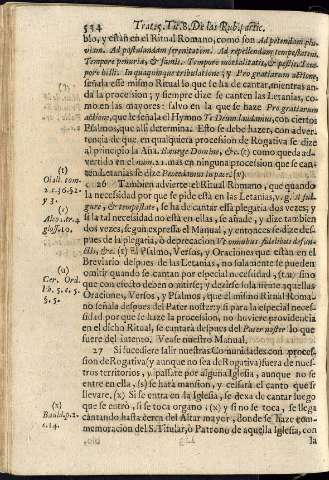 534 Trat. 5. Tit. 8. De las Rub. partic.
blo, y están en el Ritual Romano, como son Ad petendam plu-
viam. Ad postulandam serenitatem. Ad repellendam tempestatem.
Tempore penuriæ, & famis. Tempore mortalitatis, & pestis. Tem-
pore belli. In quacumque tribulatione; y Pro gratiarum actione,
señala esse mismo Ritual lo que se ha de cantar, mientras an-
da la procession; y siempre dize se canten las Letanias, co-
mo en las mayores: salvo en la que se haze Pro gratiarum
actione, que le señala el Hymno Te Deum laudamus, con ciertos
Psalmos, que alli determina. Esto se debe hazer, con adver-
tencia de que à qualquiera procession de Rogativa se dize
al principio la Aña. Exurge Domine, &c. (t) como queda ad-
vertido en el num. 21. mas en ninguna procession que se can-
ten Letanias se dize Procedamus in pace. (v)
26 Tambien advierte el Ritual Romano, que quando
la necessidad por que se pide està en las Letanias, v.g. A ful-
gure, & tempestate, se ha de cantar essa plegaria dos vezes; y
si la tal necessidad no està en ellas, se añade, y dize tambien
dos vezes, segun expressa el Manual, y entonces se dize des-
pues de la plegaria, ò deprecacion Ut omnibus fidelibus defun-
ctis, &c. (t) El Psalmo, Versus, y Oraciones que estàn en el
Breviario despues de las Letanias, no solamente se pueden
omitir quando se cantan por especial necessidad, (u) sino
que con efecto deben omitirse; y dezirse solamente aquellas
Oraciones, Versos, y Psalmos, que el mismo Ritual Roma-
no señala despues del Pater noster; y si para la especial necessi-
dad por que se haze la procession, no huviere providencia
en el dicho Ritual, se cantarà despues del Pater noster lo que
fuere del intento. Vease nuestro Manual.
27 Si sucediere salir nuestras Comunidades con proces-
sion de Rogativa (y aunque no sea de Rogativa) fuera de nues-
tros territorios, y passare por alguna Iglesia, aunque no se
entre en ella, (s) se harà mansion, y cessarà el canto que se
llevare. (x) Si se entra en la Iglesia, se dexa de cantar luego
que se entrò, si se toca organo; (x) y si no se toca, se llega
cantando hasta cerca del Altar mayor, donde se haze com-
memoracion del S. Titular, ò Patrono de aquella Iglesia, con
la
(t)
Olall. tom.
2. c. 36. §. 2.
(t)
(u)
Cer. Ord.
(x)